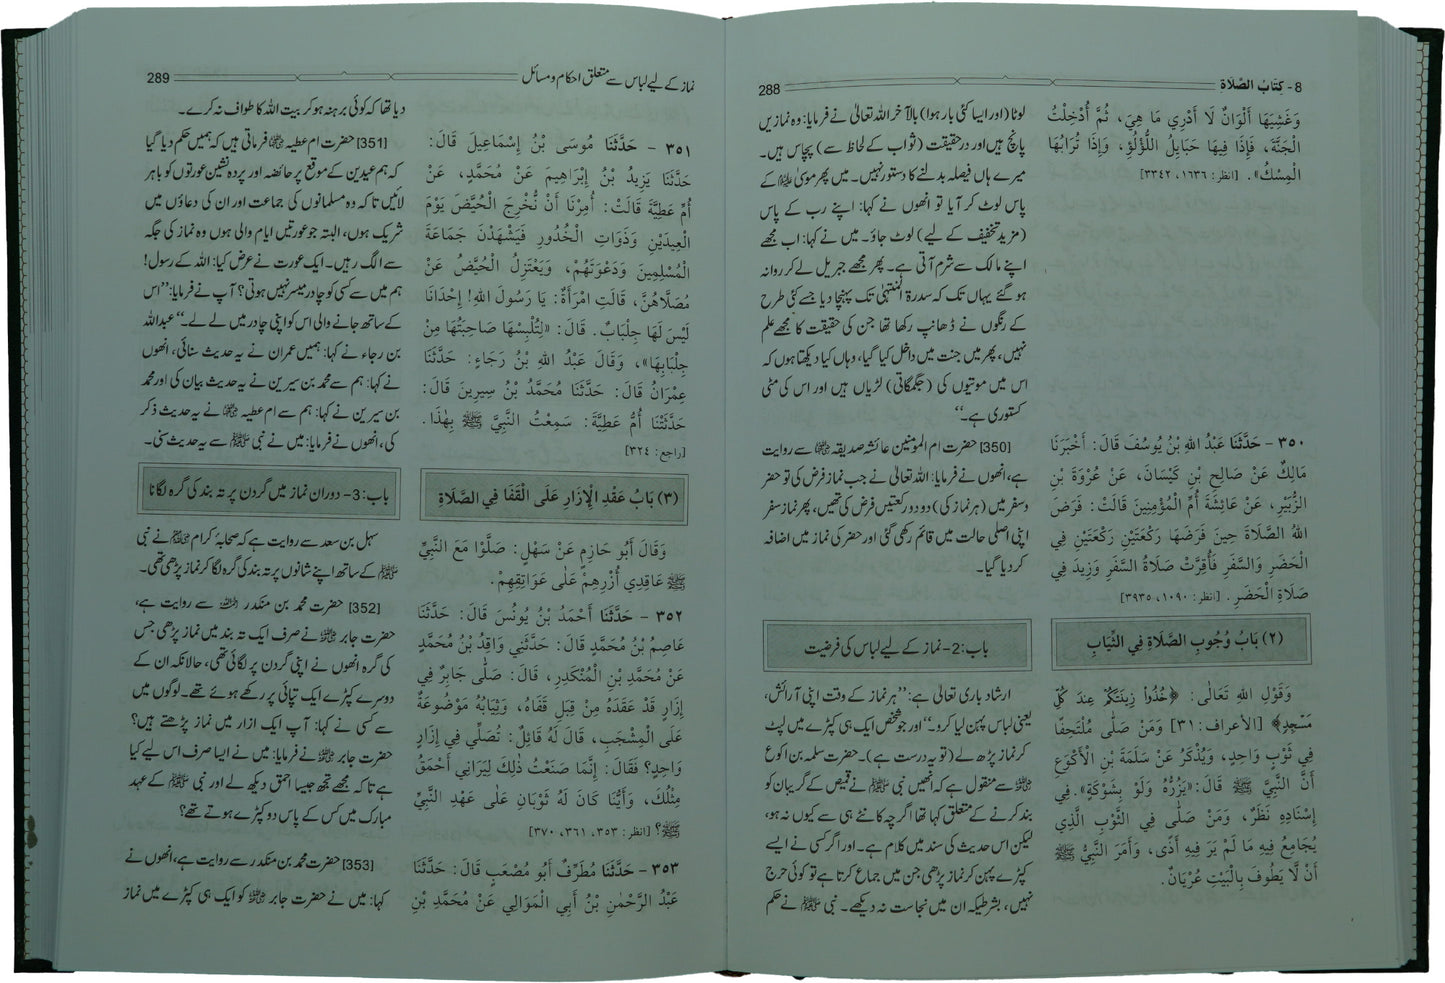 8- كِتَابُ الصَّلَاة
288
وَغَشِيَهَا أَلْوَانٌ لَا أَدْرِي مَا هِيَ، ثُمَّ أُدْخِلْتُ
الْجَنَّةَ، فَإِذَا فِيهَا حَبَايِلُ اللُّؤْلُؤِ، وَإِذَا تُرَابُهَا
الْمِسْكُ». [انظر: ١٦٣٦، ٣٣٤٢]
٣٥٠ - حَدَّثَنَا عَبْدُ اللهِ بْنُ يُوسُفَ قَالَ: أَخْبَرَنَا
مَالِكٌ عَنْ صَالِحِ بْنِ كَيْسَانَ، عَنْ عُرْوَةَ بْنِ
الزُّبَيْرِ، عَنْ عَائِشَةَ أُمِّ الْمُؤْمِنِينَ قَالَتْ: فَرَضَ
اللهُ الصَّلَاةَ حِينَ فَرَضَهَا رَكْعَتَيْنِ رَكْعَتَيْنِ فِي
الْحَضَرِ وَالسَّفَرِ فَأُقِرَّتْ صَلَاةُ السَّفَرِ وَزِيدَ فِي
صَلَاةِ الْحَضَرِ. [انظر: ١٠٩٠، ٣٩٣٥]
(٢) بَابُ وُجُوبِ الصَّلَاةِ فِي الثِّيَابِ
وَقَوْلِ اللهِ تَعَالَى: ﴿خُذُوا۟ زِينَتَكُمْ عِندَ كُلِّ
مَسْجِدٍ﴾ [الأعراف: ٣١] وَمَنْ صَلَّى مُلْتَحِفًا
فِي ثَوْبٍ وَاحِدٍ، وَيُذْكَرُ عَنْ سَلَمَةَ بْنِ الْأَكْوَعِ
أَنَّ النَّبِيَّ ﷺ قَالَ: «يَزُرُّهُ وَلَوْ بِشَوْكَةٍ». فِي
إِسْنَادِهِ نَظَرٌ، وَمَنْ صَلَّى فِي الثَّوْبِ الَّذِي
يُجَامِعُ فِيهِ مَا لَمْ يَرَ فِيهِ أَذًى، وَأَمَرَ النَّبِيُّ ﷺ
أَنْ لَّا يَطُوفَ بِالْبَيْتِ عُرْيَانٌ.
لوٹا (اور ایسا کئی بار ہوا) بالآخر اللہ تعالیٰ نے فرمایا: وہ نمازیں
پانچ ہیں اور درحقیقت (ثواب کے لحاظ سے) پچاس ہیں۔
میرے ہاں فیصلہ بدلنے کا دستور نہیں۔ میں پھر موسیٰ علیہ السلام کے
پاس لوٹ کر آیا تو انھوں نے کہا: اپنے رب کے پاس
(مزید تخفیف کے لیے) لوٹ جاؤ۔ میں نے کہا: اب مجھے
اپنے مالک سے شرم آتی ہے۔ پھر مجھے جبریل لے کر روانہ
ہو گئے یہاں تک کہ سدرۃ المنتہیٰ تک پہنچا دیا جسے کئی طرح
کے رنگوں نے ڈھانپ رکھا تھا جن کی حقیقت کا مجھے علم
نہیں، پھر میں جنت میں داخل کیا گیا، وہاں کیا دیکھتا ہوں کہ
اس میں موتیوں کی (جگمگاتی) لڑیاں ہیں اور اس کی مٹی
کستوری ہے۔‘‘
[350] حضرت ام المومنین عائشہ صدیقہ رضی اللہ عنہا سے روایت
ہے، انھوں نے فرمایا: اللہ تعالیٰ نے جب نماز فرض کی تو حضر
و سفر میں (ہر نماز کی) دو دو رکعتیں فرض کی تھیں، پھر نماز سفر
اپنی اصلی حالت میں قائم رکھی گئی اور حضر کی نماز میں اضافہ
کر دیا گیا۔
باب: 2- نماز کے لیے لباس کی فرضیت
ارشاد باری تعالیٰ ہے: ’’ہر نماز کے وقت اپنی آرائش،
یعنی لباس پہن لیا کرو۔‘‘ اور جو شخص ایک ہی کپڑے میں لپٹ
کر نماز پڑھ لے (تو یہ درست ہے)۔ حضرت سلمہ بن اکوع
رضی اللہ عنہ سے منقول ہے کہ انھیں نبی ﷺ نے قمیص کے گریبان کو
بند کرنے کے متعلق کہا تھا اگرچہ کانٹے ہی سے کیوں نہ ہو،
لیکن اس حدیث کی سند میں کلام ہے۔ اور اگر کسی نے ایسے
کپڑے پہن کر نماز پڑھی جن میں جماع کرتا ہے تو کوئی حرج
نہیں، بشرطیکہ ان میں نجاست نہ دیکھے۔ نبی ﷺ نے حکم
نماز کے لیے لباس سے متعلق احکام و مسائل
289
٣٥١ - حَدَّثَنَا مُوسَى بْنُ إِسْمَاعِيلَ قَالَ:
حَدَّثَنَا يَزِيدُ بْنُ إِبْرَاهِيمَ عَنْ مُحَمَّدٍ، عَنْ
أُمِّ عَطِيَّةَ قَالَتْ: أُمِرْنَا أَنْ نُخْرِجَ الْحُيَّضَ يَوْمَ
الْعِيدَيْنِ وَذَوَاتِ الْخُدُورِ فَيَشْهَدْنَ جَمَاعَةَ
الْمُسْلِمِينَ وَدَعْوَتَهُمْ، وَيَعْتَزِلُ الْحُيَّضُ عَنْ
مُصَلَّاهُنَّ، قَالَتِ امْرَأَةٌ: يَا رَسُولَ اللهِ! إِحْدَانَا
لَيْسَ لَهَا جِلْبَابٌ. قَالَ: «لِتُلْبِسْهَا صَاحِبَتُهَا مِنْ
جِلْبَابِهَا»، وَقَالَ عَبْدُ اللهِ بْنُ رَجَاءٍ: حَدَّثَنَا
عِمْرَانُ قَالَ: حَدَّثَنَا مُحَمَّدُ بْنُ سِيرِينَ قَالَ:
حَدَّثَتْنَا أُمُّ عَطِيَّةَ: سَمِعْتُ النَّبِيَّ ﷺ بِهٰذَا.
[راجع: ٣٢٤]
(٣) بَابُ عَقْدِ الْإِزَارِ عَلَى الْقَفَا فِي الصَّلَاةِ
وَقَالَ أَبُو حَازِمٍ عَنْ سَهْلٍ: صَلَّوْا مَعَ النَّبِيِّ
ﷺ عَاقِدِي أُزْرِهِمْ عَلَى عَوَاتِقِهِمْ.
٣٥٢ - حَدَّثَنَا أَحْمَدُ بْنُ يُونُسَ قَالَ: حَدَّثَنَا
عَاصِمُ بْنُ مُحَمَّدٍ قَالَ: حَدَّثَنِي وَاقِدُ بْنُ مُحَمَّدٍ
عَنْ مُحَمَّدِ بْنِ الْمُنْكَدِرِ، قَالَ: صَلَّى جَابِرٌ فِي
إِزَارٍ قَدْ عَقَدَهُ مِنْ قِبَلِ قَفَاهُ، وَثِيَابُهُ مَوْضُوعَةٌ
عَلَى الْمِشْجَبِ، قَالَ لَهُ قَائِلٌ: تُصَلِّي فِي إِزَارٍ
وَاحِدٍ؟ فَقَالَ: إِنَّمَا صَنَعْتُ ذٰلِكَ لِيَرَانِي أَحْمَقُ
مِثْلُكَ، وَأَيُّنَا كَانَ لَهُ ثَوْبَانِ عَلَى عَهْدِ النَّبِيِّ
ﷺ؟ [انظر: ٣٥٣، ٣٦١، ٣٧٠]
٣٥٣ - حَدَّثَنَا مُطَرِّفٌ أَبُو مُصْعَبٍ قَالَ: حَدَّثَنَا
عَبْدُ الرَّحْمٰنِ بْنُ أَبِي الْمَوَالِي عَنْ مُحَمَّدِ بْنِ
دیا تھا کہ کوئی برہنہ ہو کر بیت اللہ کا طواف نہ کرے۔
[351] حضرت ام عطیہ رضی اللہ عنہا فرماتی ہیں کہ ہمیں حکم دیا گیا
کہ ہم عیدین کے موقع پر حائضہ اور پردہ نشین عورتوں کو باہر
لائیں تاکہ وہ مسلمانوں کی جماعت اور ان کی دعاؤں میں
شریک ہوں، البتہ جو عورتیں ایام والی ہوں وہ نماز کی جگہ
سے الگ رہیں۔ ایک عورت نے عرض کیا: اللہ کے رسول!
ہم میں سے کسی کو چادر میسر نہیں ہوتی؟ آپ نے فرمایا: ’’اس
کے ساتھ جانے والی اس کو اپنی چادر میں لے لے۔‘‘ عبداللہ
بن رجاء نے کہا: ہمیں عمران نے یہ حدیث سنائی، انھوں
نے کہا: ہم سے محمد بن سیرین نے یہ حدیث بیان کی اور محمد
بن سیرین نے کہا: ہم سے ام عطیہ رضی اللہ عنہا نے یہ حدیث ذکر
کی، انھوں نے فرمایا: میں نے نبی ﷺ سے یہ حدیث سنی۔
باب: 3- دوران نماز میں گردن پر تہ بند کی گرہ لگانا
سہل بن سعد سے روایت ہے کہ صحابۂ کرام رضی اللہ عنہم نے نبی
ﷺ کے ساتھ اپنے شانوں پر تہ بند کی گرہ لگا کر نماز پڑھی تھی۔
[352] حضرت محمد بن منکدر رحمہ اللہ سے روایت ہے،
حضرت جابر رضی اللہ عنہ نے صرف ایک تہ بند میں نماز پڑھی جس
کی گرہ انھوں نے اپنی گردن پر لگائی تھی، حالانکہ ان کے
دوسرے کپڑے ایک تپائی پر رکھے ہوئے تھے۔ لوگوں میں
سے کسی نے کہا: آپ ایک ازار میں نماز پڑھتے ہیں؟
حضرت جابر رضی اللہ عنہ نے فرمایا: میں نے ایسا صرف اس لیے کیا
ہے تاکہ مجھے تجھ جیسا احمق دیکھ لے اور نبی ﷺ کے عہد
مبارک میں کس کے پاس دو کپڑے ہوتے تھے؟
[353] حضرت محمد بن منکدر سے روایت ہے، انھوں نے
کہا: میں نے حضرت جابر رضی اللہ عنہ کو ایک ہی کپڑے میں نماز